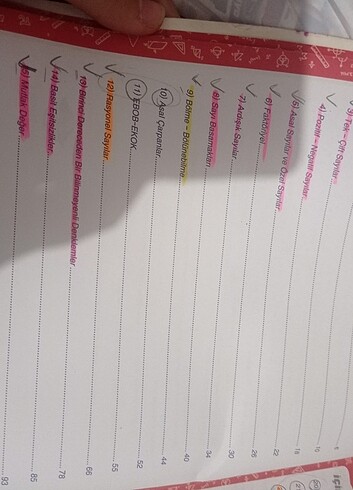 3) Tek – Çift Sayılar 6
4) Pozitif – Negatif Sayılar 16
5) Asal Sayılar ve Özel Sayılar 18
6) Faktöriyel 22
7) Ardışık Sayılar 26
8) Sayı Basamakları 30
9) Bölme – Bölünebilme 34
10) Asal Çarpanlar 40
11) EBOB–EKOK 44
12) Rasyonel Sayılar 52
13) Birinci Dereceden Bir Bilinmeyenli Denklemler 55
14) Basit Eşitsizlikler 66
15) Mutlak Değer 78
85
93